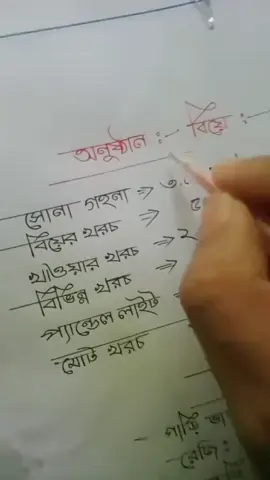 অনুষ্ঠান :- বিয়ে :
সোনা গহনা ⇒ ৩.
বিয়ের খরচ ⇒
খাওয়ার খরচ ⇒ ২
বিভিন্ন খরচ ⇒
প্যান্ডেল লাইট
মোট খরচ
- গাড়ি ভা
- রেজি :